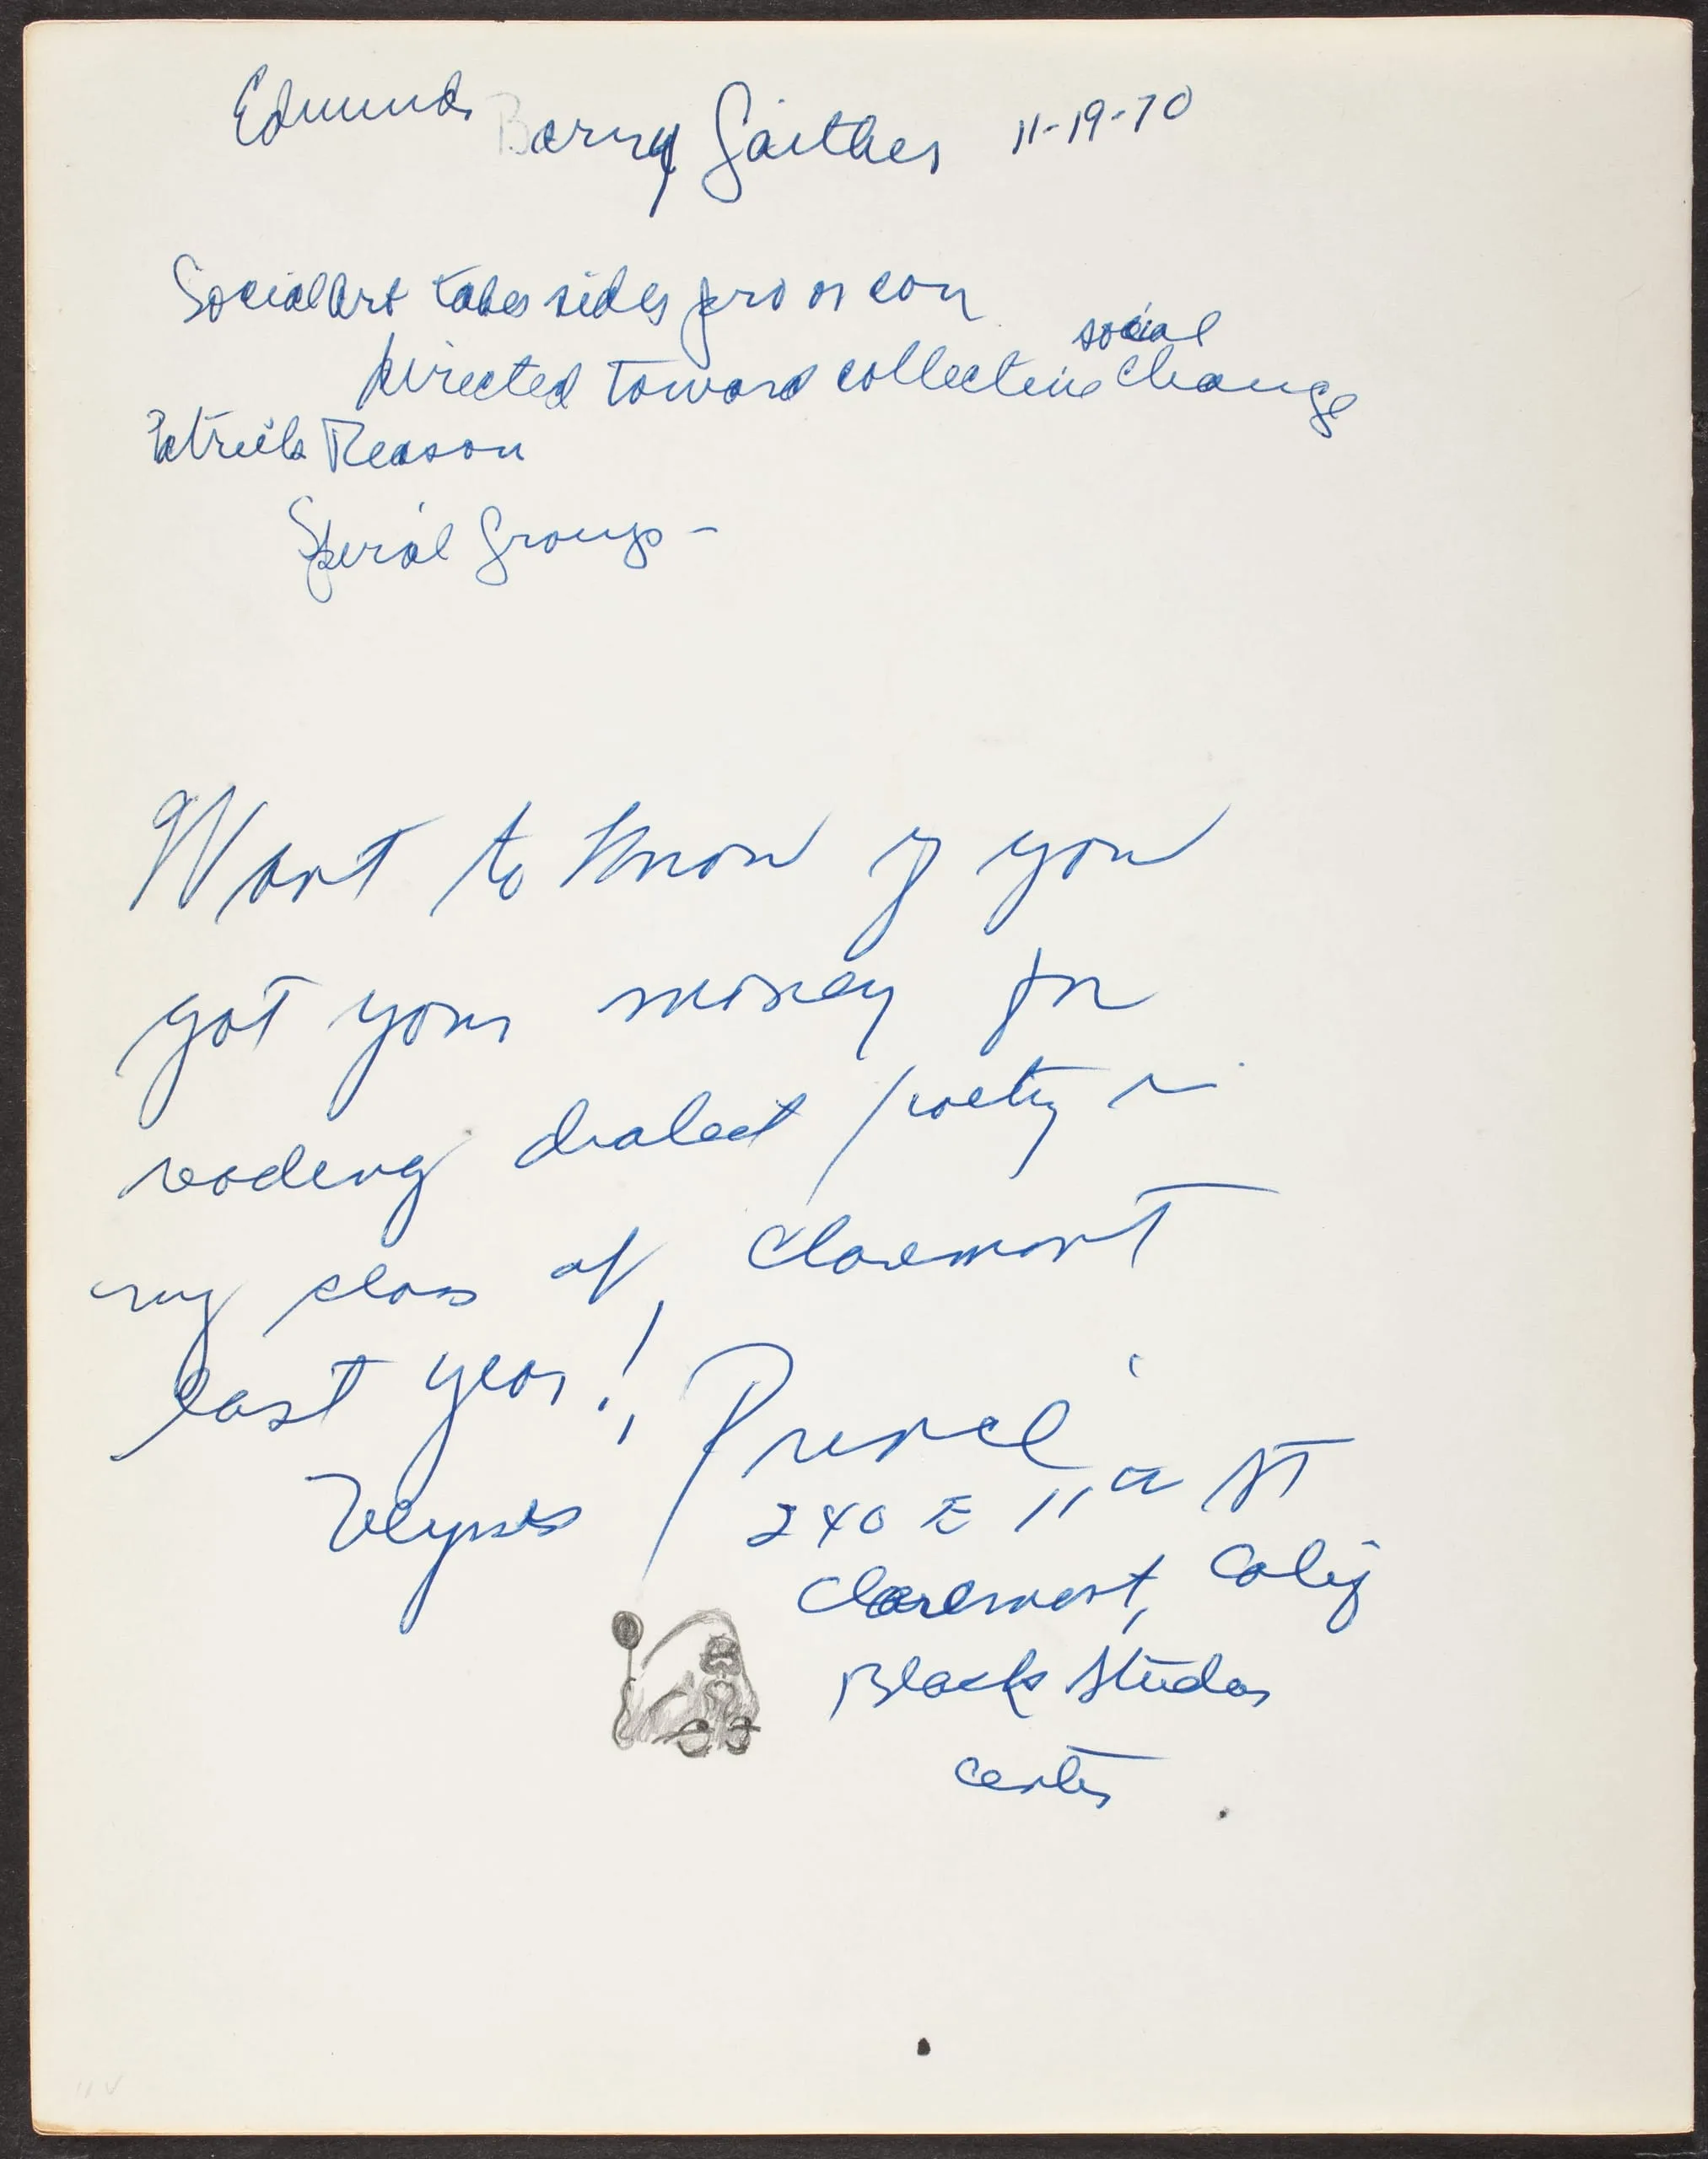 Edmund Barry Gaither 11-19-70
Social Art takes sides pro or con
social
Directed toward collective change
Reason
Special Groups -
Want to know if you
got your money for
reading dialect poetry in
my class at Claremont
last year!
Ulysses Prince
240 E 11th St
Claremont, Calif
Black Studies
Center